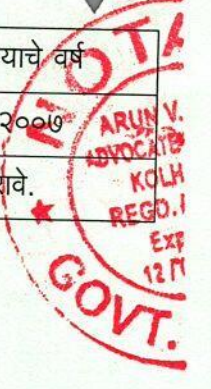 याचे वर्ष
२००७
वे.
NOTA
ARUN V.
ADVOCATE
KOLH
REGD.
GOVT.